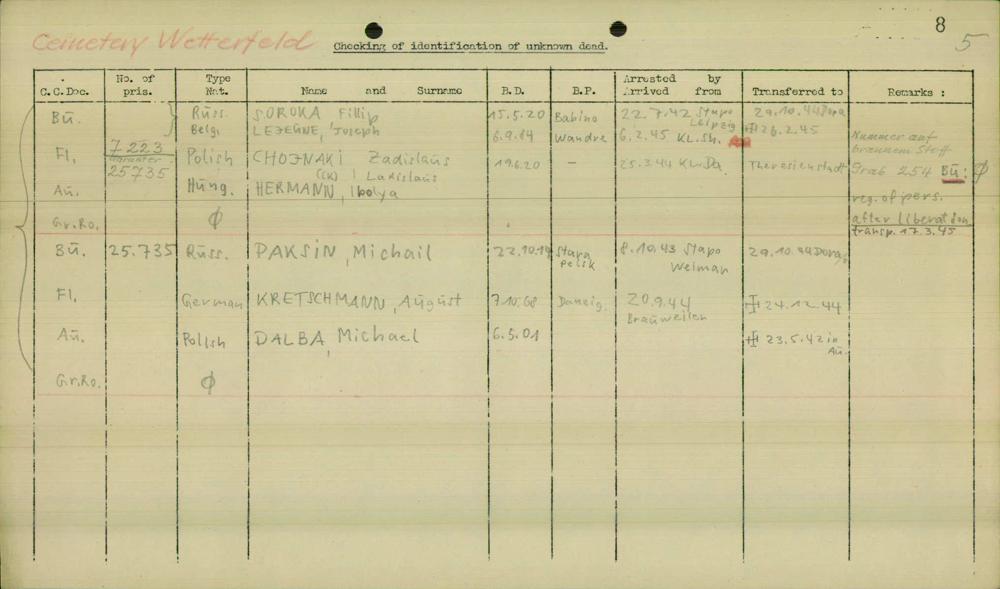 8
5
Cemetery Wetterfeld
Checking of identification of unknown dead.
C.C.Doc. No. of pris. Type Nat. Name and Surname B.D. B.P. Arrested by Arrived from Transferred to Remarks :
Bū. Russ. SOROKA Fillip 15.5.20 Babino 22.7.42 Stapo Leipzig 29.10.44 Dora
Belg. LEJEUNE, Joseph 6.9.84 Wandre 6.2.45 KL.Sh. 26.2.45
Nummer auf braunem Stoff
Fl. 7223 Polish CHOJNAKI Zadislaūs 19.6.20 - 25.3.44 KL.Da. Theresienstadt Grab 254 Bū: ϕ
darunter 25735 (CK) | Ladislaūs
Aū. Hūng. HERMANN, Ibolya
reg. of pers. after liberation transp. 17.3.45
Gr.Ro. ϕ
Bū. 25.735 Rūss. PAKSIN, Michail 22.10.19 8.10.43 Stapo Weimar 29.10.44 Dora
Fl. German KRETSCHMANN, Aūgūst 7.10.08 Danzig. 20.9.44 Braūweiler 24.12.44
Aū. Polish DALBA, Michael 6.5.01 23.5.42 in Aū.
Gr.Ro. ϕ